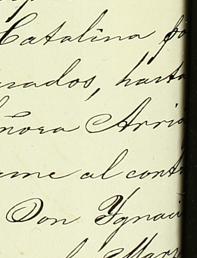 Catalina po
nados, hasta
ñora Arri
me al cont
Don Ygnaci